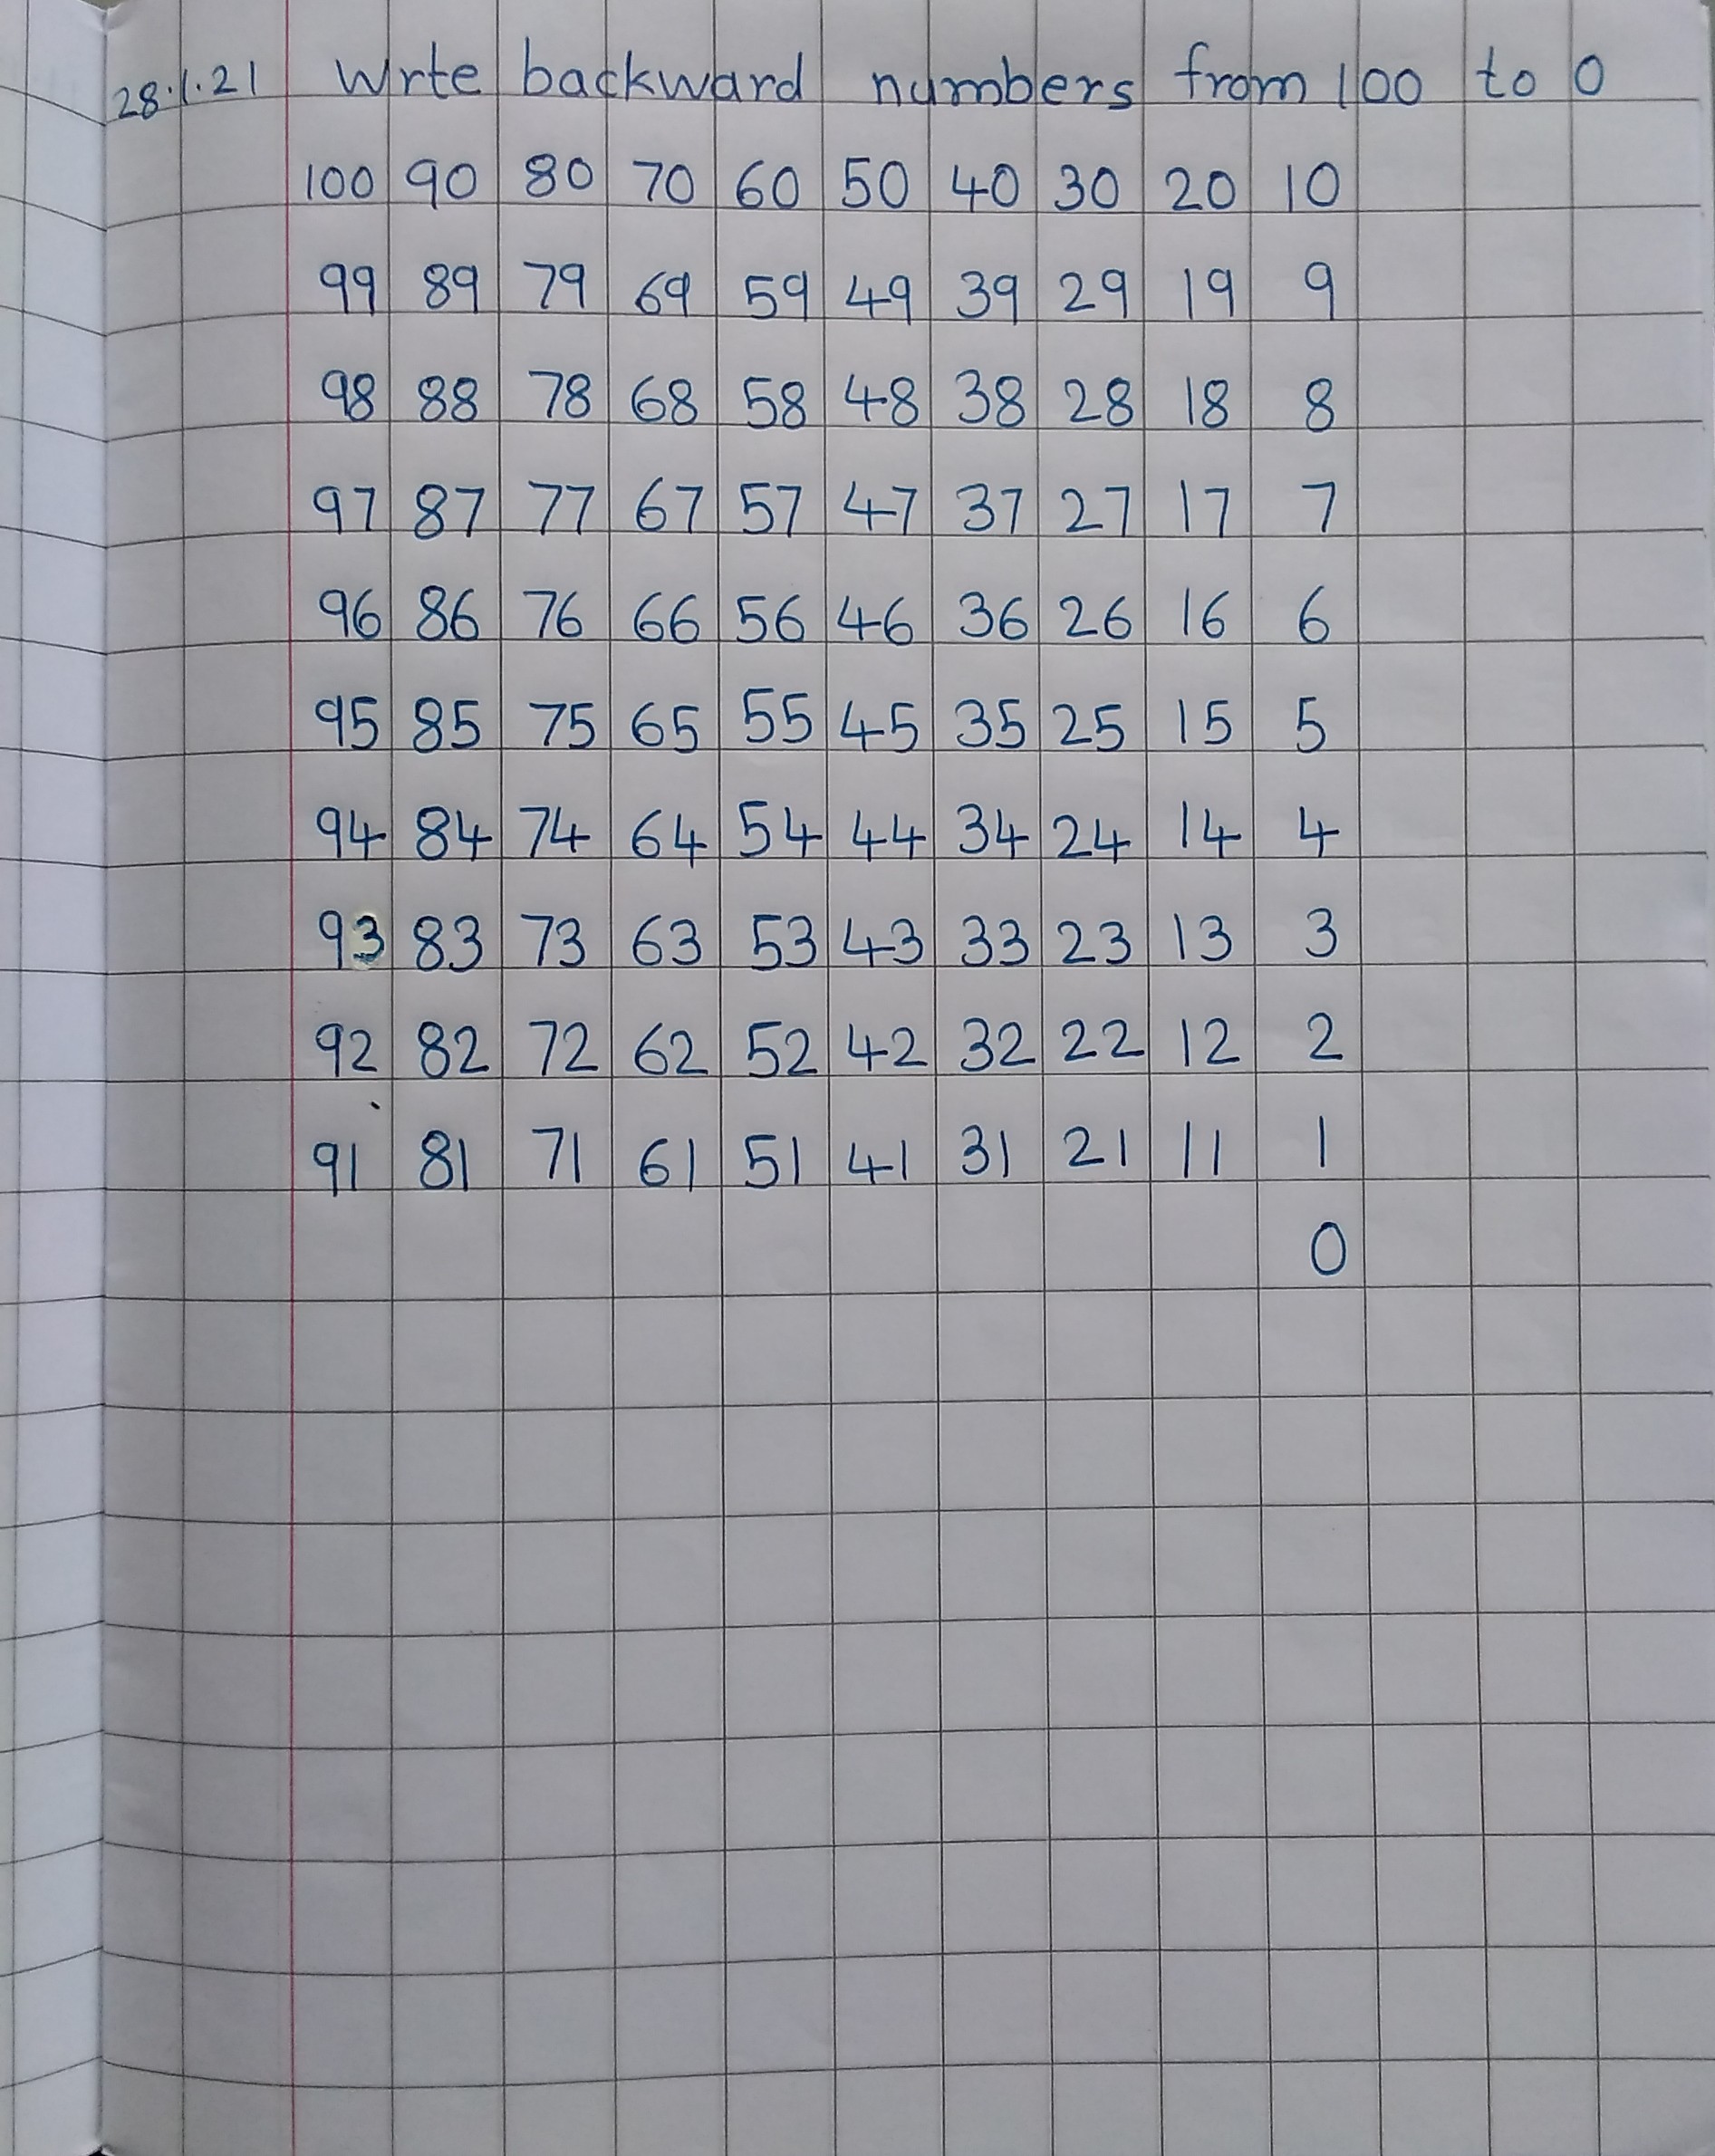 28.1.21 Wrte backward numbers from 100 to 0
100 90 80 70 60 50 40 30 20 10
99 89 79 69 59 49 39 29 19 9
98 88 78 68 58 48 38 28 18 8
97 87 77 67 57 47 37 27 17 7
96 86 76 66 56 46 36 26 16 6
95 85 75 65 55 45 35 25 15 5
94 84 74 64 54 44 34 24 14 4
93 83 73 63 53 43 33 23 13 3
92 82 72 62 52 42 32 22 12 2
91 81 71 61 51 41 31 21 11 1
0